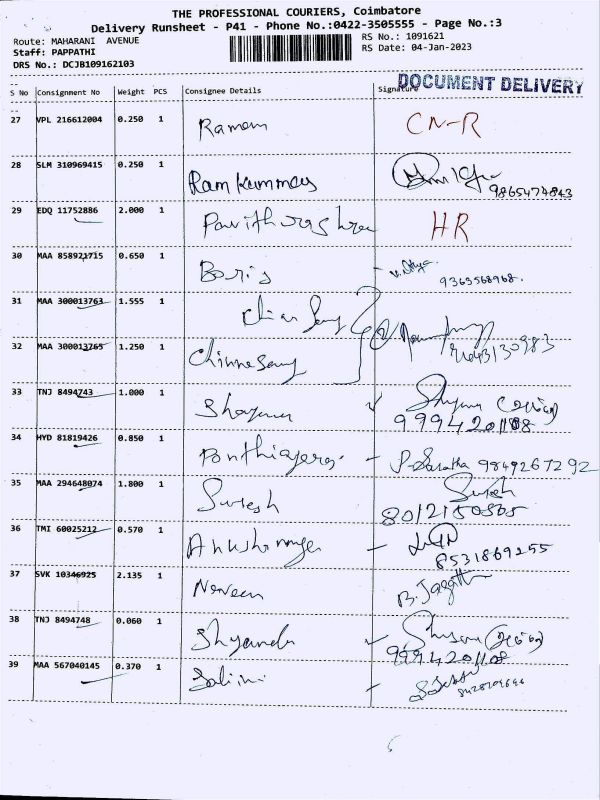 THE PROFESSIONAL COURIERS, Coimbatore
Delivery Runsheet - P41 - Phone No.:0422-3505555 - Page No.:3
Route: MAHARANI AVENUE
RS No.: 1091621
Staff: PAPPATHI
RS Date: 04-Jan-2023
DRS No.: DCJB109162103
DOCUMENT DELIVERY
S No Consignment No Weight PCS Consignee Details Signature
27 VPL 216612004 0.250 1 Raman CN-R
28 SLM 310969415 0.250 1 Ram Kummar
9865474843
29 EDQ 11752886 2.000 1 HR
30 MAA 858921715 0.650 1 Boris
9363568968.
31 MAA 300013763 1.555 1
32 MAA 300013765 1.250 1 Chinnasamy
33 TNJ 8494743 1.000 1
9994201108
34 HYD 81819426 0.850 1 9849267292
35 MAA 294648074 1.800 1 Suresh Suresh
36 TMI 60025212 0.570 1
8531869255
37 SVK 10346925 2.135 1 Naveen
38 TNJ 8494748 0.060 1
9994201108
39 MAA 567040145 0.370 1